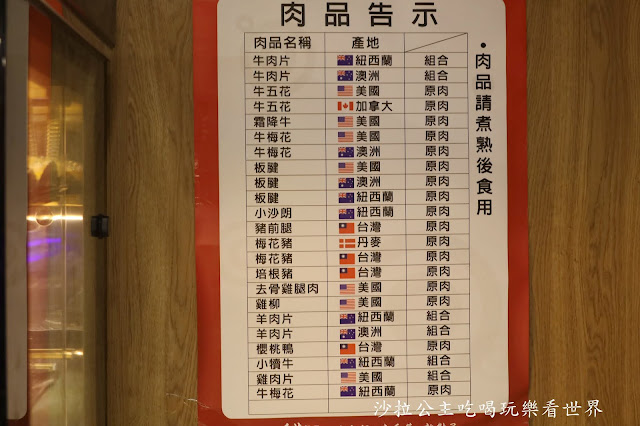 肉品告示
肉品名稱 產地
牛肉片 紐西蘭 組合
牛肉片 澳洲 組合
牛五花 美國 原肉
牛五花 加拿大 原肉
霜降牛 美國 原肉
牛梅花 美國 原肉
牛梅花 澳洲 原肉
板腱 美國 原肉
板腱 澳洲 原肉
板腱 紐西蘭 原肉
小沙朗 紐西蘭 原肉
豬前腿 台灣 原肉
梅花豬 丹麥 原肉
梅花豬 台灣 原肉
培根豬 台灣 原肉
去骨雞腿肉 美國 原肉
雞柳 美國 原肉
羊肉片 紐西蘭 組合
羊肉片 澳洲 組合
櫻桃鴨 台灣 原肉
小犢牛 紐西蘭 組合
雞肉片 美國 組合
牛梅花 紐西蘭 原肉
•肉品請煮熟後食用
沙拉公主吃喝玩樂看世界